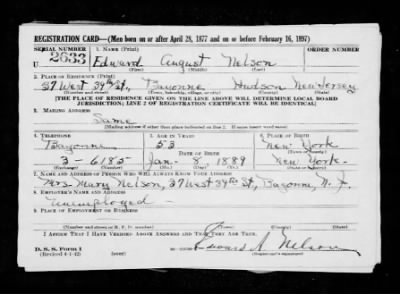 REGISTRATION CARD—(Men born on or after April 28, 1877 and on or before February 16, 1897)
SERIAL NUMBER 1. NAME (Print) ORDER NUMBER
U 2633 Edward August Nelson
(First) (Middle) (Last)
2. PLACE OF RESIDENCE (Print)
37 West 34th St., Bayonne Hudson New Jersey
(Number and street) (Town, township, village, or city) (County) (State)
[THE PLACE OF RESIDENCE GIVEN ON THE LINE ABOVE WILL DETERMINE LOCAL BOARD
JURISDICTION; LINE 2 OF REGISTRATION CERTIFICATE WILL BE IDENTICAL]
3. MAILING ADDRESS
Same
[Mailing address if other than place indicated on line 2. If same insert word same]
4. TELEPHONE 5. AGE IN YEARS 6. PLACE OF BIRTH
Bayonne 53 New York
(Town or county)
3-6185 Jan. 8, 1889 New York
(Exchange) (Number) (Mo.) (Day) (Yr.) (State or country)
7. NAME AND ADDRESS OF PERSON WHO WILL ALWAYS KNOW YOUR ADDRESS
Mrs. Mary Nelson, 37 West 34th St., Bayonne, N.J.
8. EMPLOYER'S NAME AND ADDRESS
Unemployed
9. PLACE OF EMPLOYMENT OR BUSINESS
(Number and street or R. F. D. number) (Town) (County) (State)
I AFFIRM THAT I HAVE VERIFIED ABOVE ANSWERS AND THAT THEY ARE TRUE.
Edward A. Nelson
D. S. S. Form 1
(Revised 4-1-42) (over) (Registrant's signature)